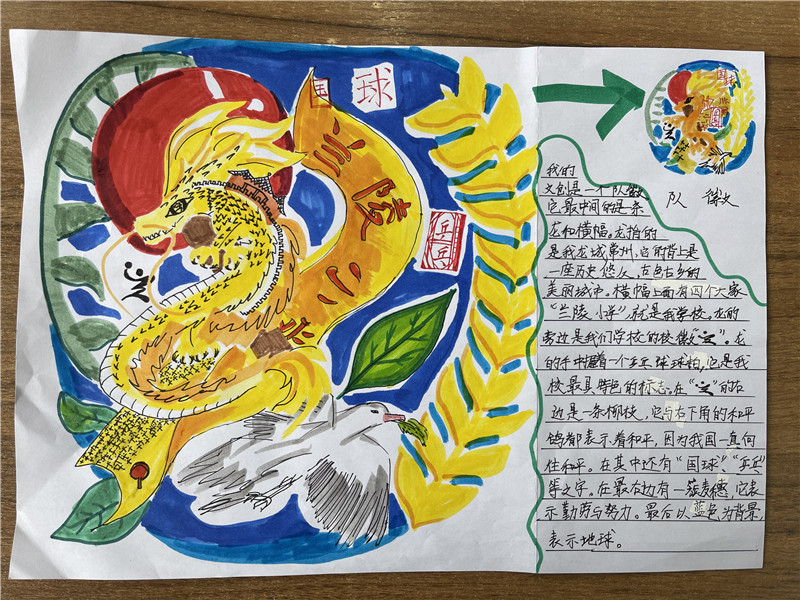 国
球
兰陵小学
乒乓
队 徽
我的
文创是一个队徽
它最中间的是一条
龙和横幅。龙指的
是我龙城常州,它的背上是
一座历史悠久、古色古乡的
美丽城市。横幅上面有四个大字
“兰陵小学”,就是我学校,龙的
旁边是我们学校的校徽“兰”。龙
的手中握着一个乒乓球球拍,它是我
校最具特色的标志。在“兰”的右
边是一条柳枝,它与右下角的和平
鸽都表示着和平,因为我国一直向
往和平。在其中还有“国球”、“乒乓”
等之字。在最右边有一颗麦穗,它表
示勤劳与努力。最后以蓝色为背景,
表示地球。